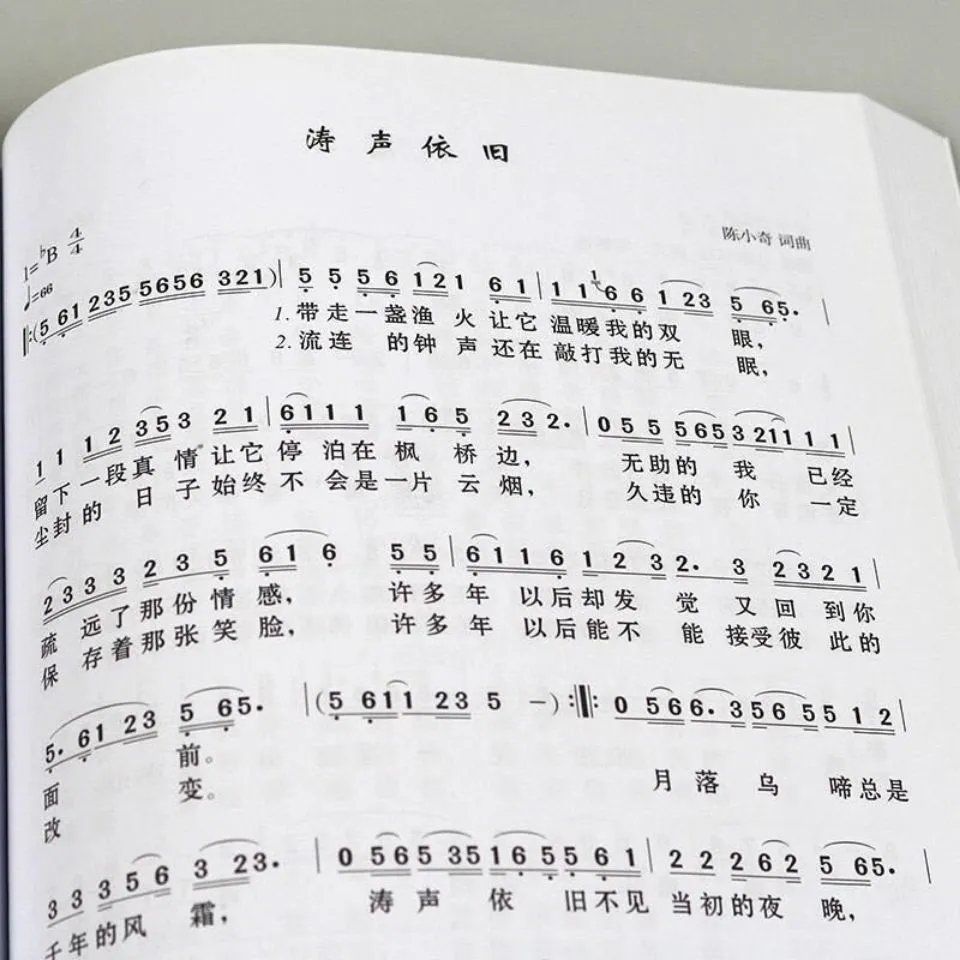 涛声依旧
陈小奇 词曲
1=♭B 4/4
♩=66
‖:(5 61 235 5656 321)| 5 5 5 6 121 61 | 1 1 6 6 1 23 5 65. |
1. 带走一盏渔 火 让它 温暖我的双 眼,
2. 流连 的钟 声 还在 敲打我的无 眠,
1 1 1 2 35 3 21 | 6111 165 232. | 055 5653 211 11 |
留下一段真 情 让它 停 泊在 枫 桥 边, 无助的 我 已经
尘封的 日 子 始终 不 会是一片 云 烟, 久违的 你 一定
2333 235 616 55 | 6116 123 2. 3 2321 |
疏 远了那份情 感, 许多 年 以后却发 觉 又 回 到你
保 存着那张笑 脸, 许多 年 以后能不 能 接受彼 此的
5. 61 23 5 65. | (5 611 23 5 -) :‖: 0 566. 35 65 512 |
面 前。 月 落 乌 啼总是
改 变。
3 3 3 5 6 3 23. | 0 565 35 165 561 | 2 2 2 62 5 65. |
千年的风 霜, 涛 声 依 旧不见 当初的夜 晚,